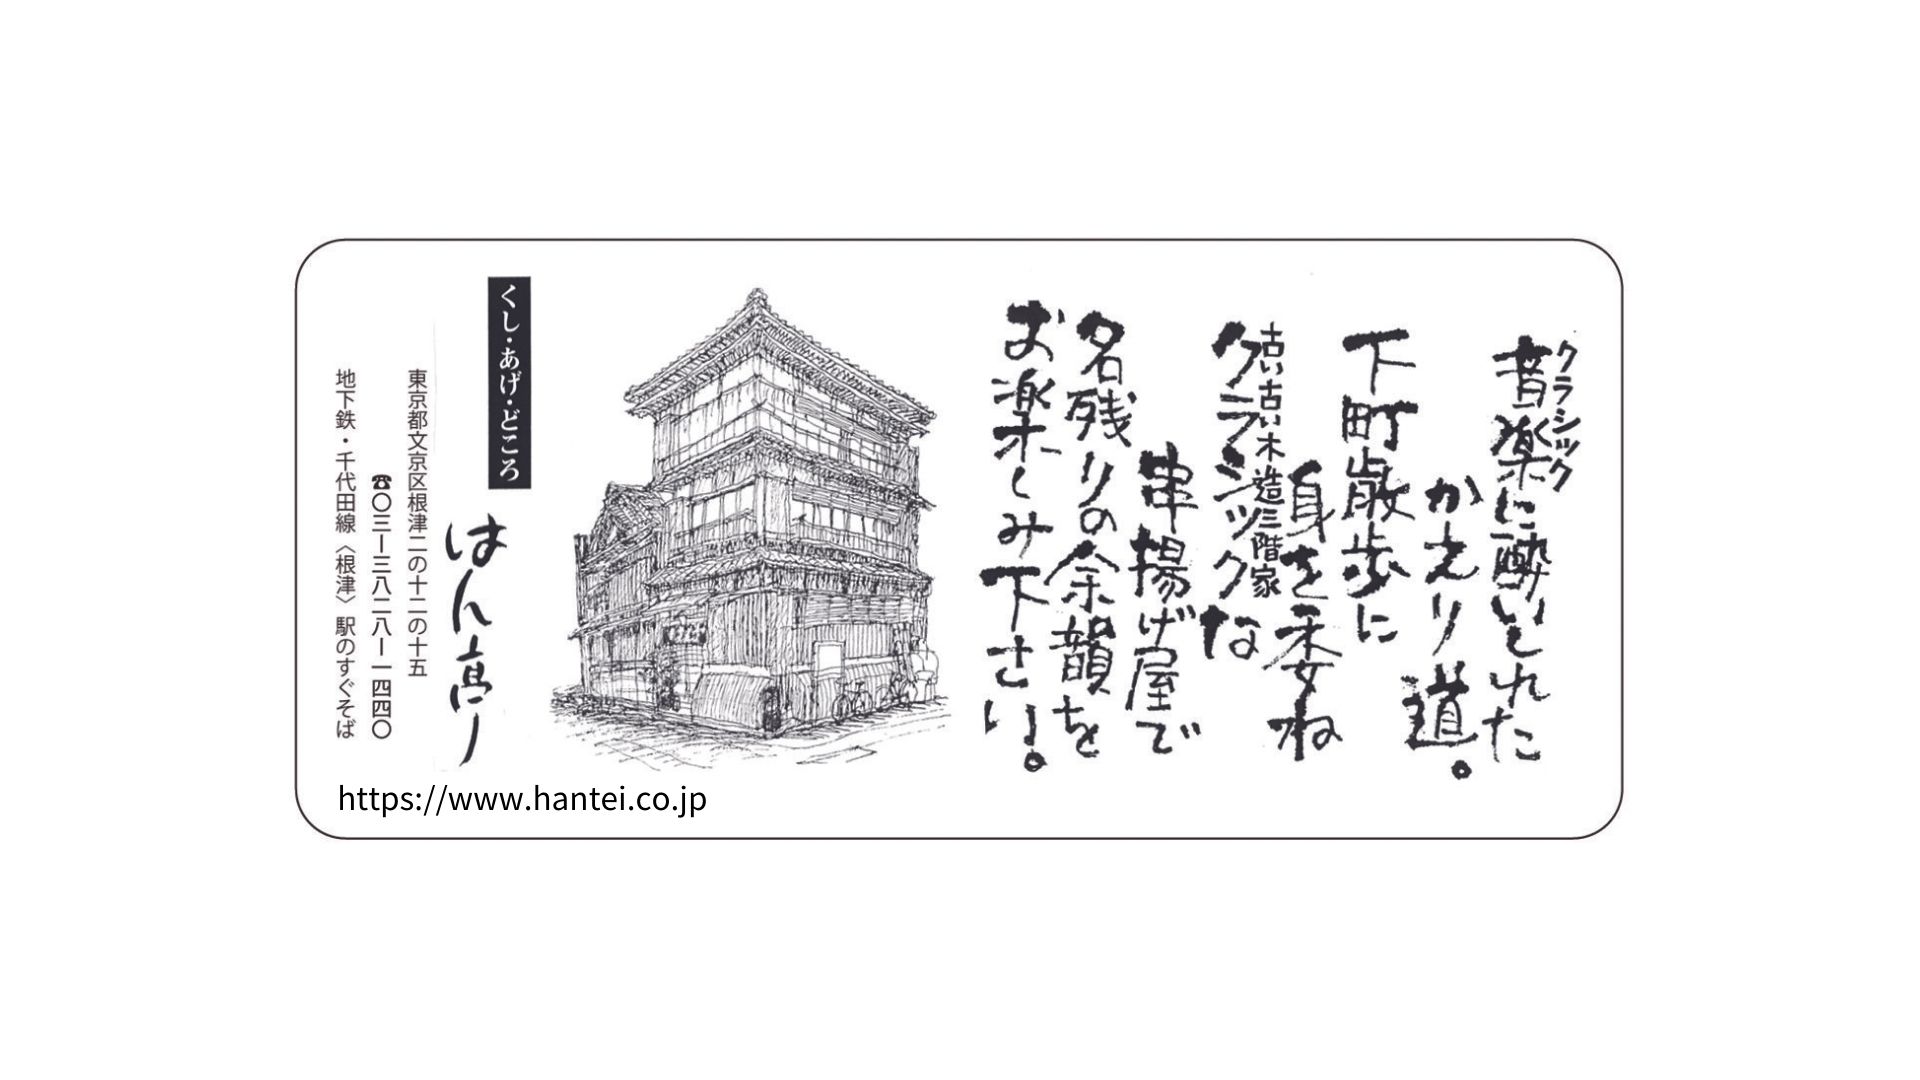 クラシック
音楽に酔いしれた
かえり道。
下町散歩に
身を委ね
古い古い木造三階家
クラシックな
串揚げ屋で
名残りの余韻を
お楽しみ下さい。
くし・あげ・どころ
はん亭
東京都文京区根津二の十二の十五
☎〇三ー三八二八ー一四四〇
地下鉄・千代田線〈根津〉駅のすぐそば
https://www.hantei.co.jp